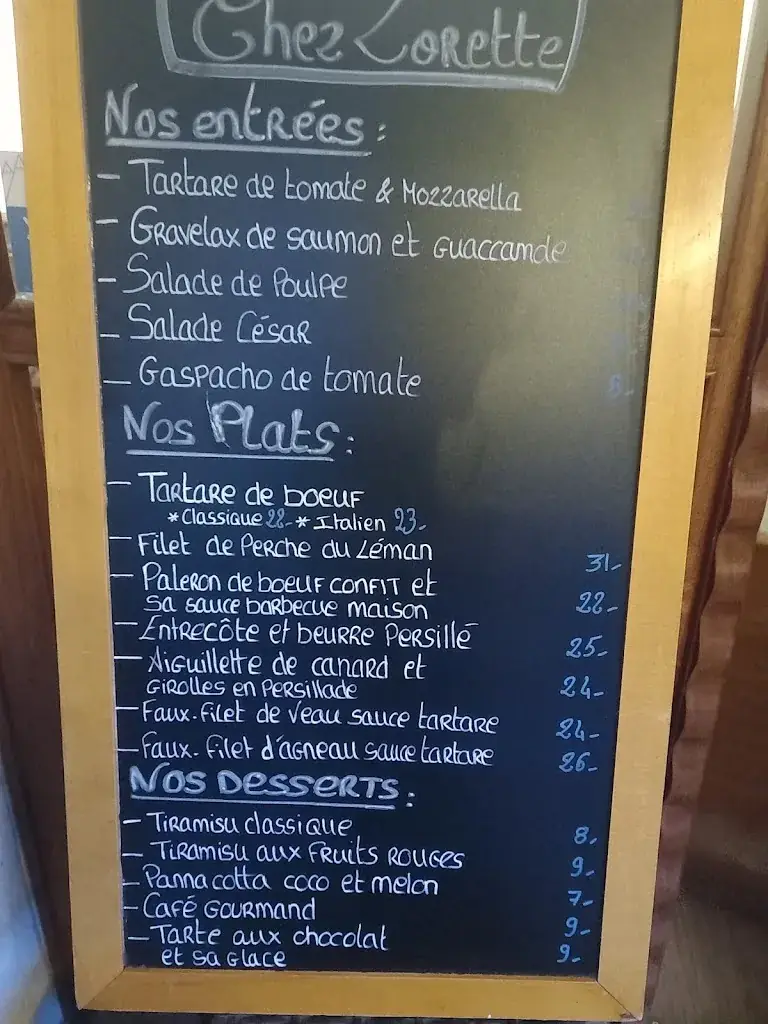 Chez Lorette
Nos entrées :
- Tartare de tomate & Mozzarella
- Gravelax de saumon et Guaccamole
- Salade de Poulpe
- Salade César
- Gaspacho de tomate
Nos Plats :
- Tartare de boeuf
* Classique 22.- * Italien 23.-
- Filet de Perche du Léman 31.-
- Paleron de boeuf confit et
sa sauce barbecue maison 22.-
- Entrecôte et beurre Persillé 25.-
- Aiguillette de canard et
Girolles en Persillade 24.-
- Faux-filet de veau sauce tartare 24.-
- Faux-filet d'agneau sauce tartare 26.-
Nos Desserts :
- Tiramisu classique 8.
- Tiramisu aux Fruits Rouges 9.-
- Panna cotta coco et melon 7.-
- Café Gourmand 9.-
- Tarte aux chocolat
et sa Glace 9.-